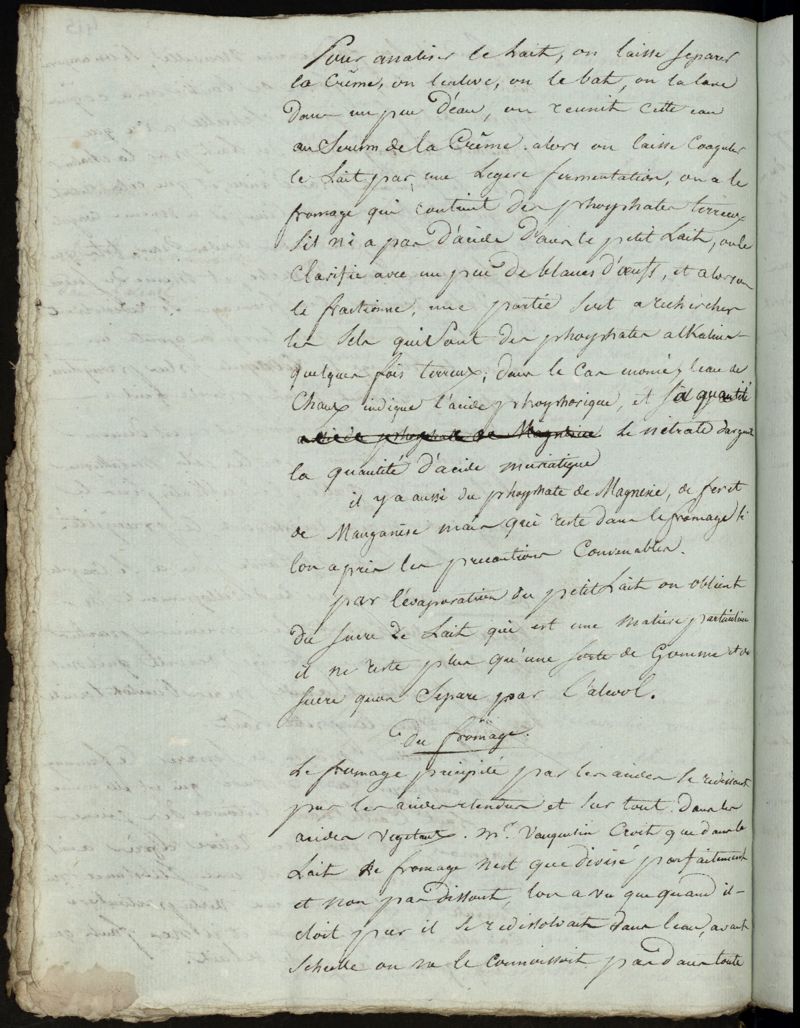 Pour analiser le Lait, on laisse separer
la Crême, on l'enleve, on le bat, on la lave
Dans un peu d'eau, on reunit cette eau
au Serum de la Crême. alors on laisse Coaguler
le Lait par une Legere fermentation, on a le
fromage qui contient des phosphates terreux
S'il ni a pas d'acide Dans le petit Lait, on le
Clarifie avec un peu de blancs d'œufs, et alors on
le fractionne, une partie sert a rechercher
les Sels qui Sont des phosphates alkalins
quelques fois terreux; dans le Cas l'eau de
Chaux indique l'acide phosphorique, et sa quantité
phosphate de Magnésie le nitrate d'argent
la quantité d'acide muriatique
il y a aussi du phosphate de Magnesie, de fer et
de Manganése mais qui reste dans le fromage si
lon a pris les precautions Convenables.
par l'évaporation du petit Lait on obtient
du sucre de Lait qui est une matiere particuliere
il ne reste plus qu'une sorte de Gomme et de
sucre quon Separe par l'alcool.
du fromage.
Le fromage précipité par les acides se redissout
par les acides etendus et sur tout Dans les
acides vegetaux. mr. Vauquelin Croit que dans le
Lait le fromage n'est que divisé parfaitement
et non pas Dissout, lon a vu que quand il
etoit pur il se redissolvait dans l'eau, avant
Scheele on ne le Connoissoit pas dans toute